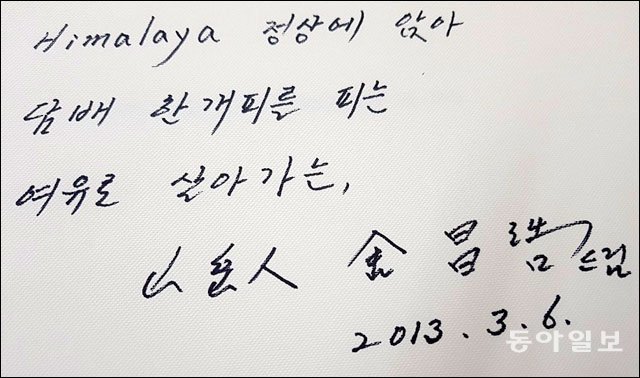 Himalaya 정상에 앉아
담배 한개피를 피는
여유로 살아가는,
山岳人 金昌浩 드림
2013. 3. 6.
동아일보